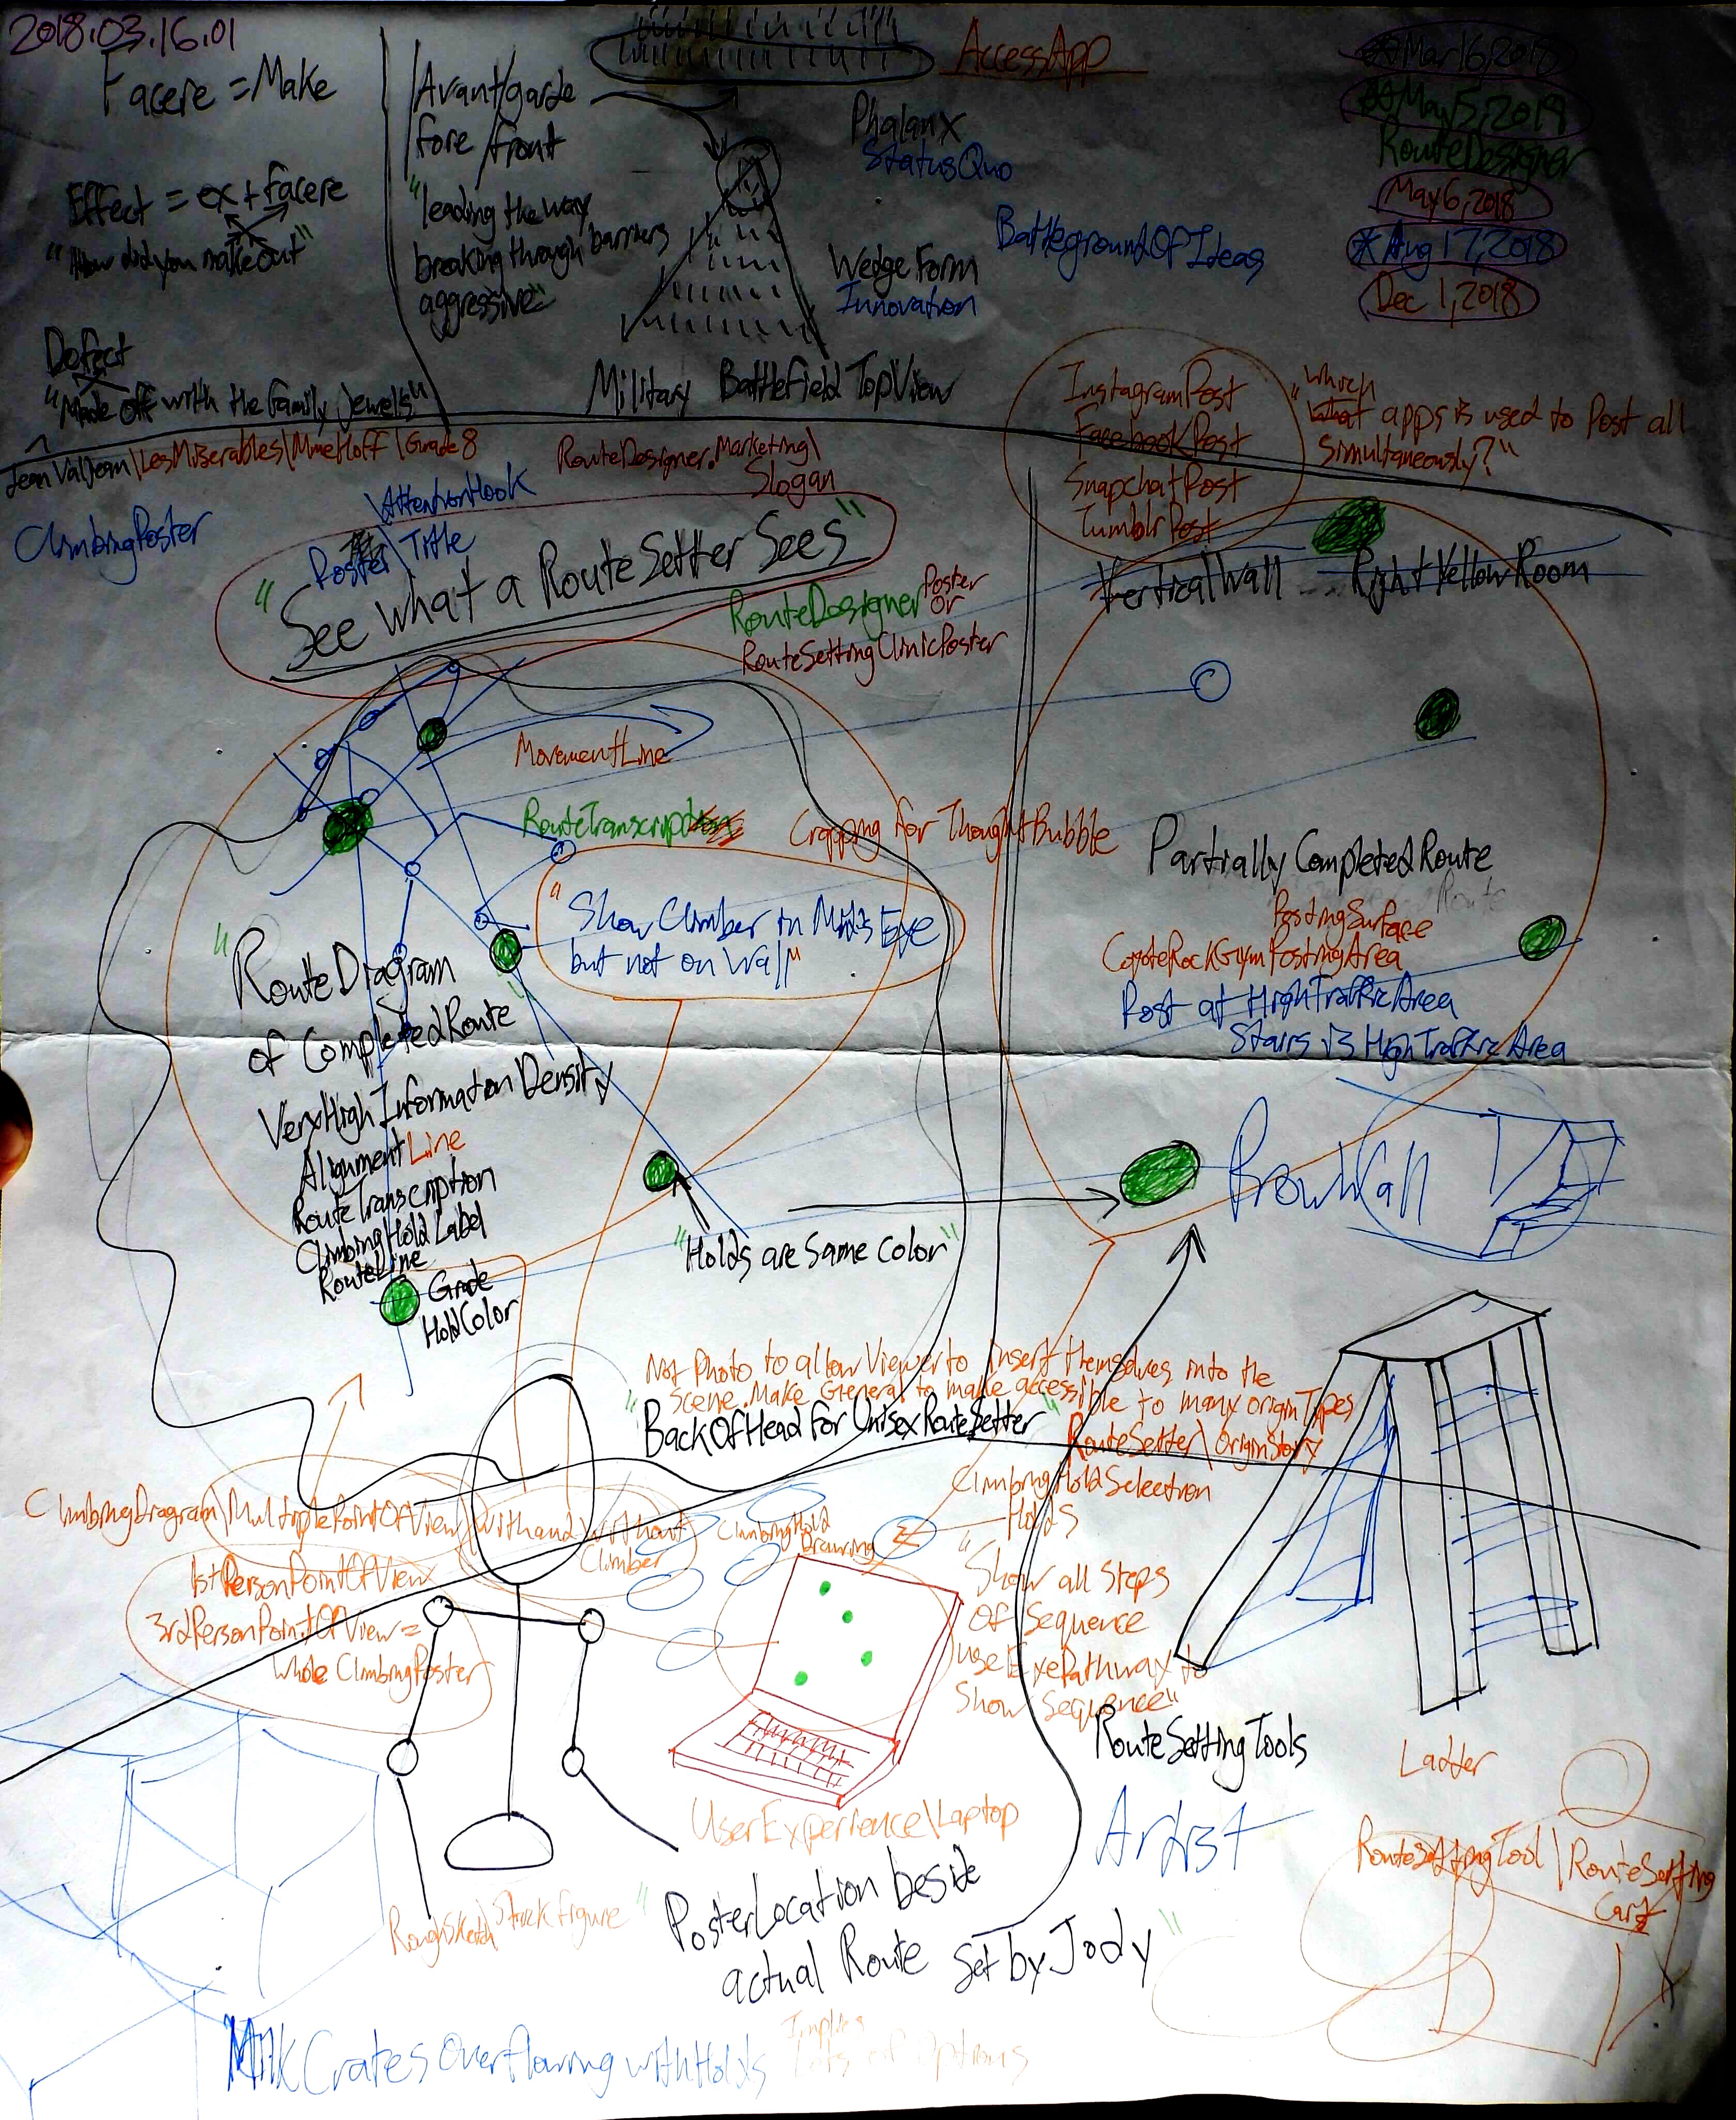 2018.03.16.01
Facere = Make
Effect = ex + facere
"How did you make out"
Defect
"Made off with the family jewels"
JeanValJean\LesMiserables\MmeHoff\Grade8
Avant/garde
fore/front
"leading the way
breaking through barriers
aggressive"
AccessApp
Phalanx
StatusQuo
Wedge Form
Innovation
BattlegroundOfIdeas
Military Battlefield TopView
Mar16,2018
May5,2018
RouteDesigner
May6,2018
Aug17,2018
Dec 1,2018
InstagramPost
FacebookPost
SnapchatPost
TumblrPost
"Which
What apps is used to Post all
simultaneously?"
ClimbingPoster
\AttentionHook
Poster\Title
RouteDesigner.Marketing\
Slogan
"See what a RouteSetter Sees"
RouteDesigner Poster
or
RouteSettingClinicPoster
VerticalWall ... RightYellowRoom
MovementLine
RouteTranscription
Cropping for ThoughtBubble
"Show Climber in Mind's Eye
but not on Wall"
Partially CompletedRoute
Route
PostingSurface
CoyoteRockGymPostingArea
Post at HighTrafficArea
Stairs is HighTrafficArea
"RouteDiagram
of CompletedRoute"
VeryHigh Information Density
AlignmentLine
RouteTranscription
ClimbingHoldLabel
RouteLine
Grade
HoldColor
"Holds are Same Color"
BrownWall
Not Photo to allow Viewer to insert themselves into the
scene. Make General to make accessible to many originTypes
"BackOfHead for UnisexRouteSetter"
RouteSetter\OriginStory
ClimbingHoldSelection
Holds
ClimbingDiagram\MultiplePointOfView\WithandWithout
Climber
ClimbingHold
Drawing
1stPersonPointOfView
3rdPersonPointOfView =
Whole ClimbingPoster
"Show all Steps
Of Sequence
use EyePathway to
Show Sequence"
RouteSettingTools
Ladder
UserExperience\Laptop
Artist
RouteSettingTool\RouteSetting
Cart
RoughSketch\StickFigure
"PosterLocation beside
actual Route Set by Jody"
MilkCrates Overflowing withHolds
Implies
Lots of Options